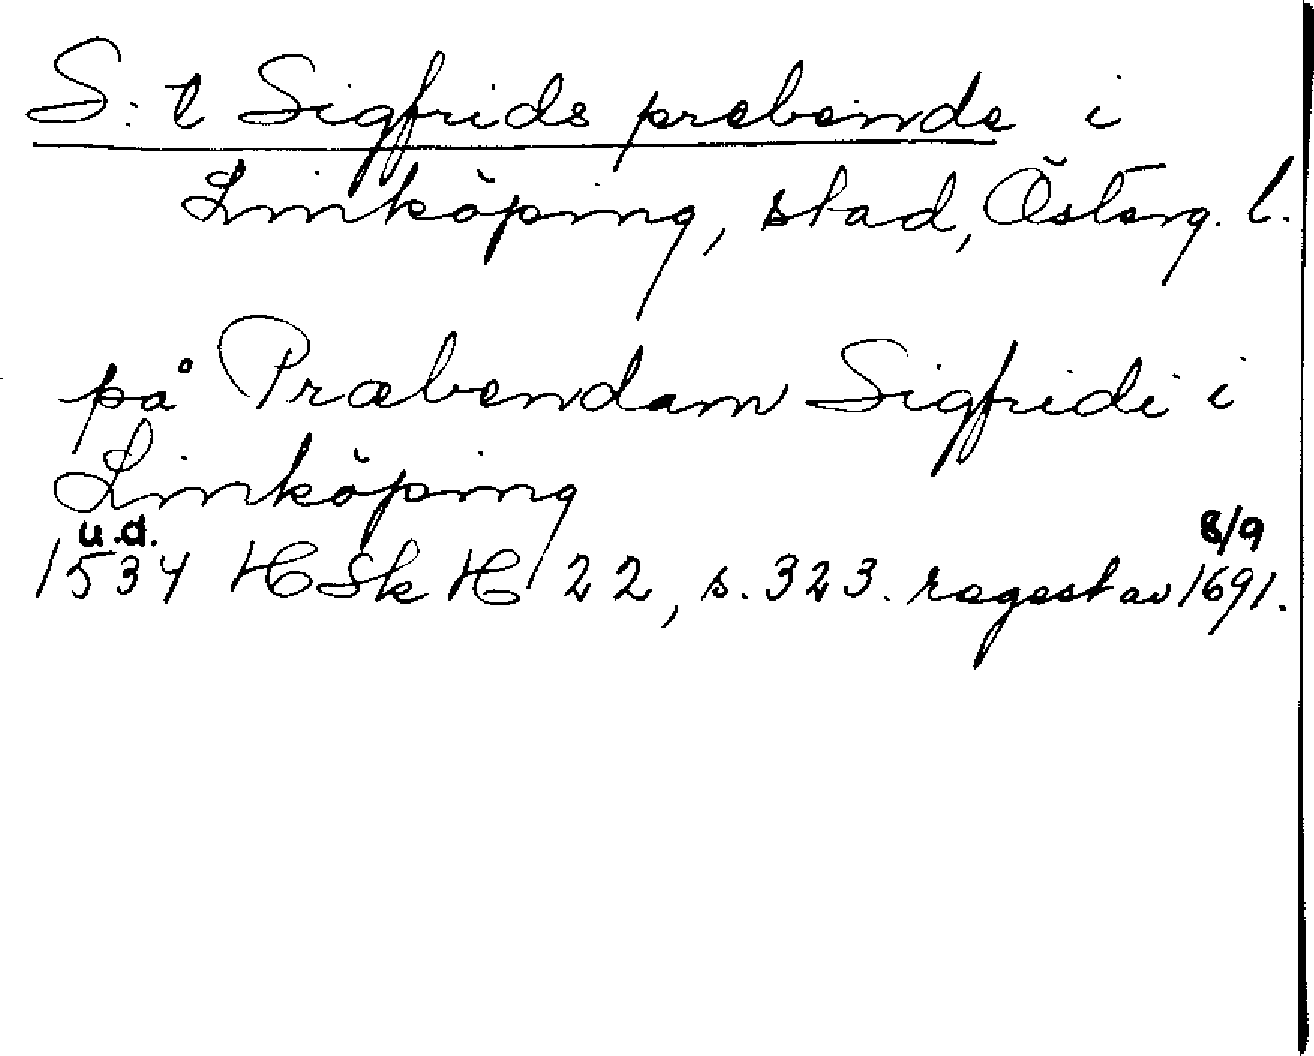 S:t Sigfrids prebende i
Linköping, stad, Österg. l.
på Præbendam Sigfridi i
Linköping
u.d. 8/9
1534 HSkH 22, s. 323. regest av 1691.